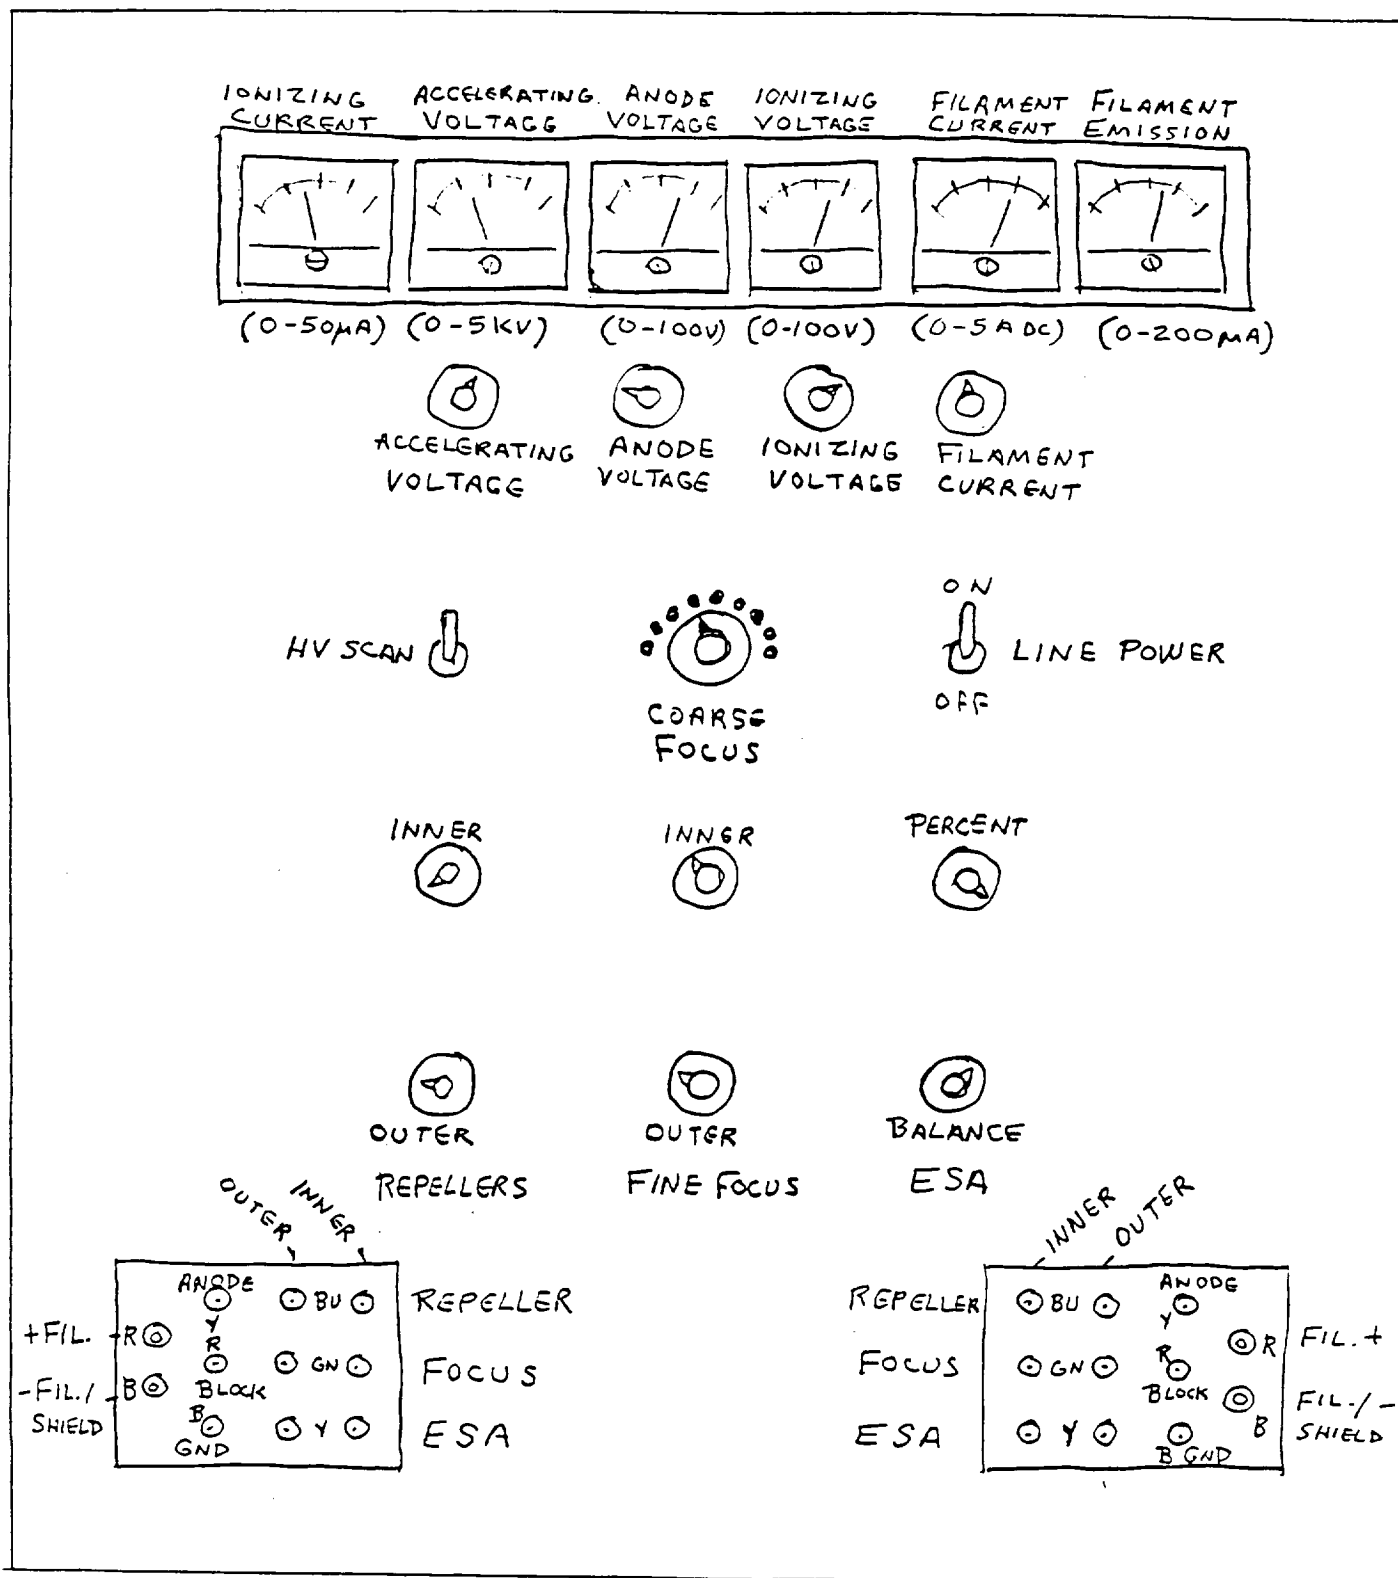 IONIZING CURRENT
ACCELERATING VOLTAGE
ANODE VOLTAGE
IONIZING VOLTAGE
FILAMENT CURRENT
FILAMENT EMISSION
(0-50µA) (0-5KV) (0-100V) (0-100V) (0-5A DC) (0-200µA)
ACCELERATING VOLTAGE
ANODE VOLTAGE
IONIZING VOLTAGE
FILAMENT CURRENT
HV SCAN
COARSE
FOCUS
ON
LINE POWER
OFF
INNER INNER PERCENT
OUTER OUTER BALANCE
REPELLERS FINE FOCUS ESA
OUTER INNER
ANODE BU REPELLER
Y
+FIL. R R GN FOCUS
BLOCK
-FIL./ B
SHIELD
B Y ESA
GND
INNER OUTER
REPELLER BU ANODE
Y
R FIL.+
FOCUS GN R
BLOCK
FIL./-
B SHIELD
ESA Y
B GND